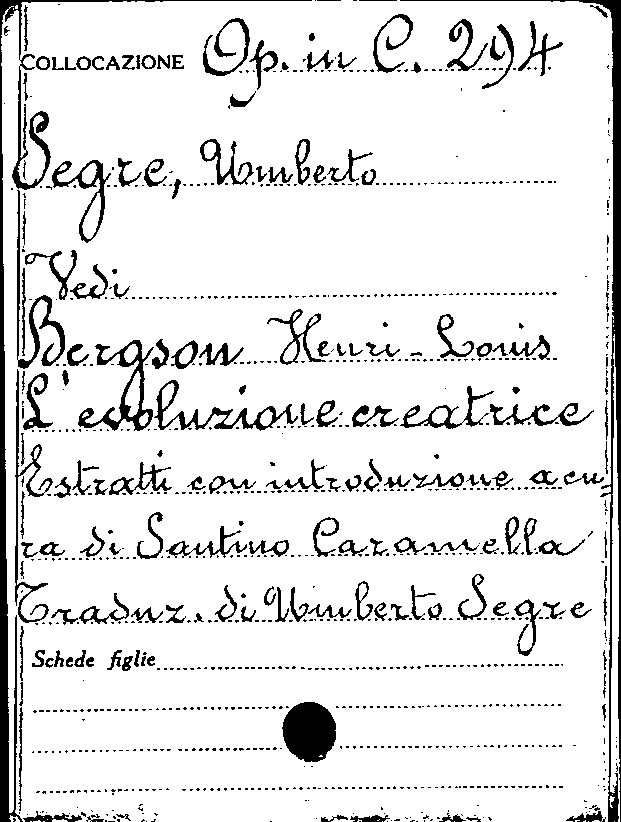 COLLOCAZIONE Op. in C. 294
Segre, Umberto
Vedi
Bergson Henri-Louis
L'evoluzione creatrice
Estratti con introduzione a cu=
ra di Santino Caramella
Traduz. di Umberto Segre
Schede figlie